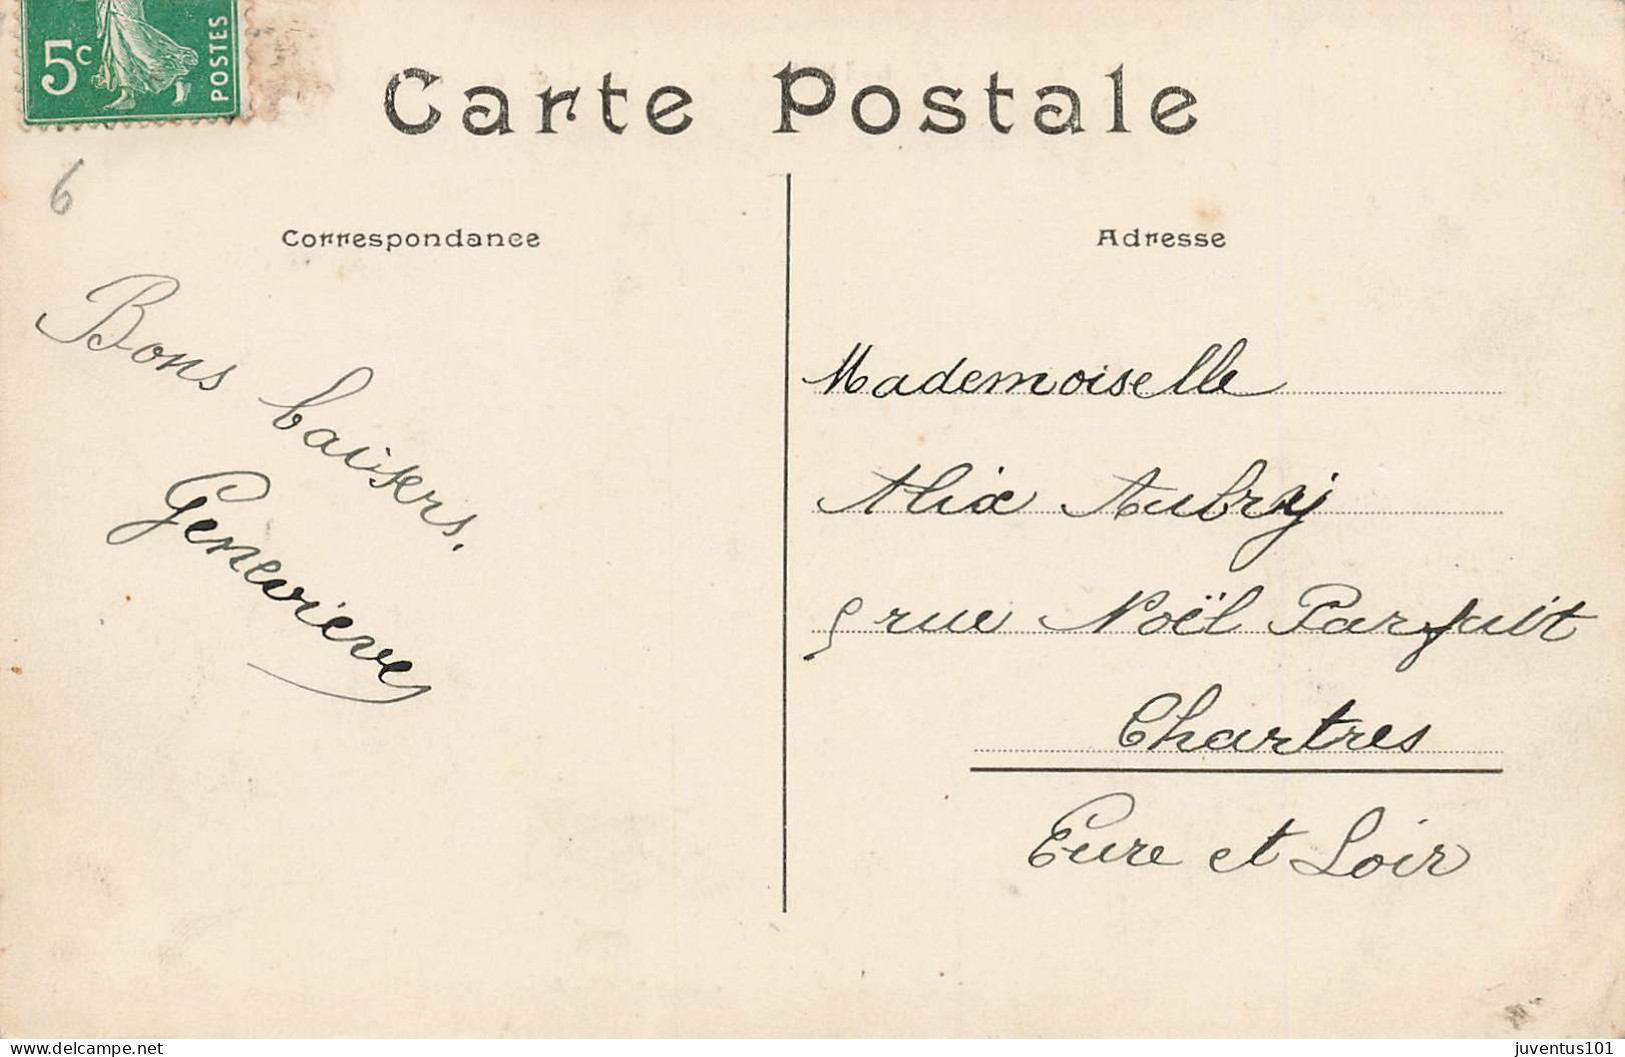 5c
POSTES
Carte Postale
6
Correspondance
Bons baisers.
Geneviève
Adresse
Mademoiselle
Alix Aubry
5 rue Noël Parfait
Chartres
Eure et Loir
www.delcampe.net
juventus101